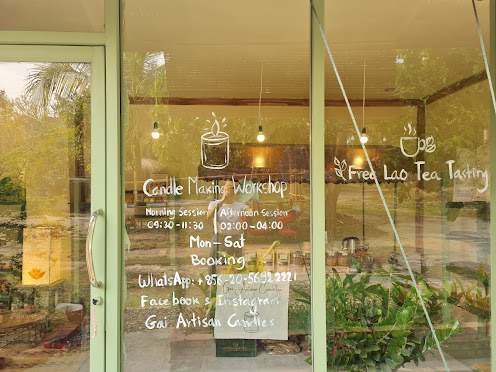 Candle Making Workshop
Morning Session Afternoon Session
09:30-11:30 02:00-04:00
Mon-Sat
Booking
WhatsApp: +856-20-5692 2221
Facebook & Instagram
Gai Artisan Candles
Free Lao Tea Tasting